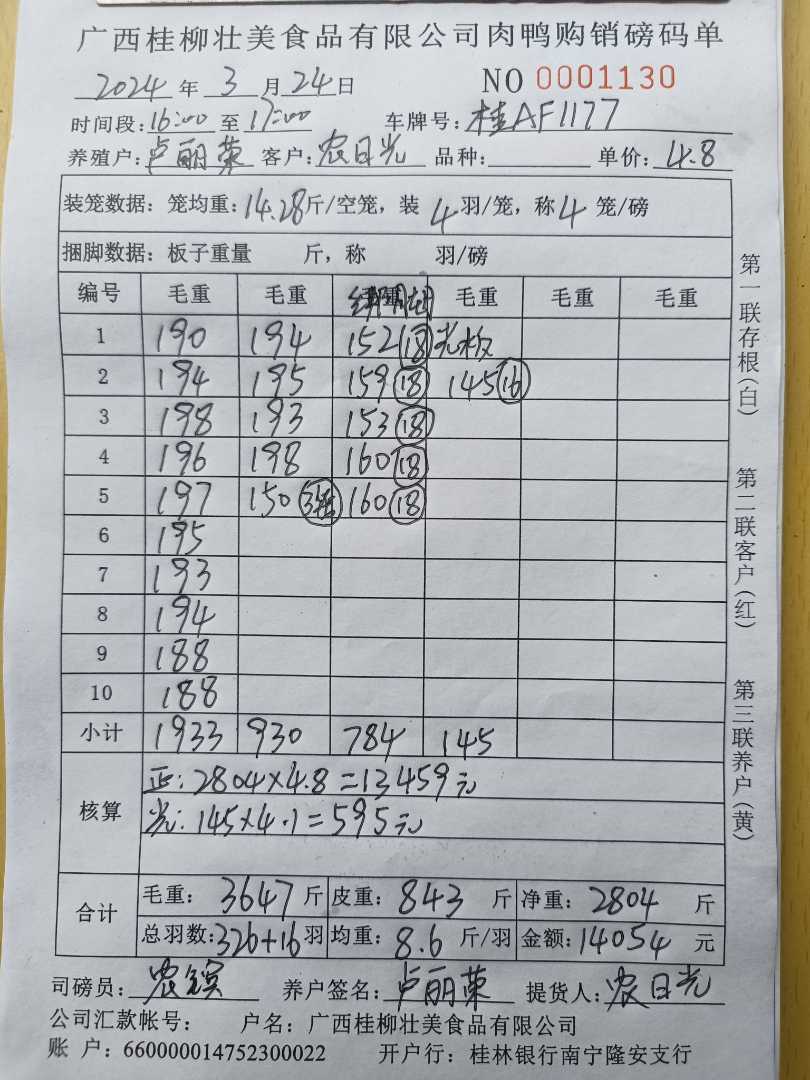 广西桂柳壮美食品有限公司肉鸭购销磅码单
2024 年 3 月 24 日 NO 0001130
时间段: 16:00 至 17:00 车牌号: 桂AF1177
养殖户: 卢丽荣 客户: 农日光 品种: 单价: 4.8
装笼数据: 笼均重: 14.28 斤/空笼, 装 4 羽/笼, 称 4 笼/磅
捆脚数据: 板子重量 斤, 称 羽/磅
编号 毛重 毛重 毛重 毛重 毛重
1 190 194 152 (18) 光板
2 194 195 159 (18) 145 (16)
3 198 193 153 (18)
4 196 198 160 (18)
5 197 150 160 (18)
6 195
7 193
8 194
9 188
10 188
小计 1933 930 784 145
核算 正: 2804×4.8=13459元
光: 145×4.1=595元
合计 毛重: 3647 斤 皮重: 843 斤 净重: 2804 斤
总羽数: 326+16 羽 均重: 8.6 斤/羽 金额: 14054 元
司磅员: 农 养户签名: 卢丽荣 提货人: 农日光
公司汇款帐号: 户名: 广西桂柳壮美食品有限公司
账 户: 660000014752300022 开户行: 桂林银行南宁隆安支行
第一联存根(白)
第二联客户(红)
第三联养户(黄)